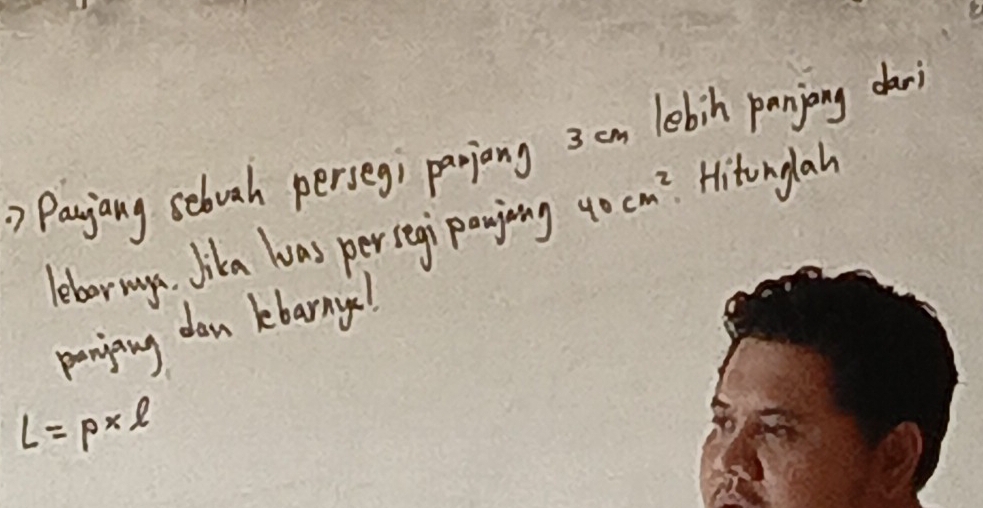 ⇒ Panjang sebuah persegi panjang 3 cm lebih panjang dari
lebarnya. Jika luas persegi panjang 40 cm². Hitunglah
panjang dan lebarnya!
L = p × l